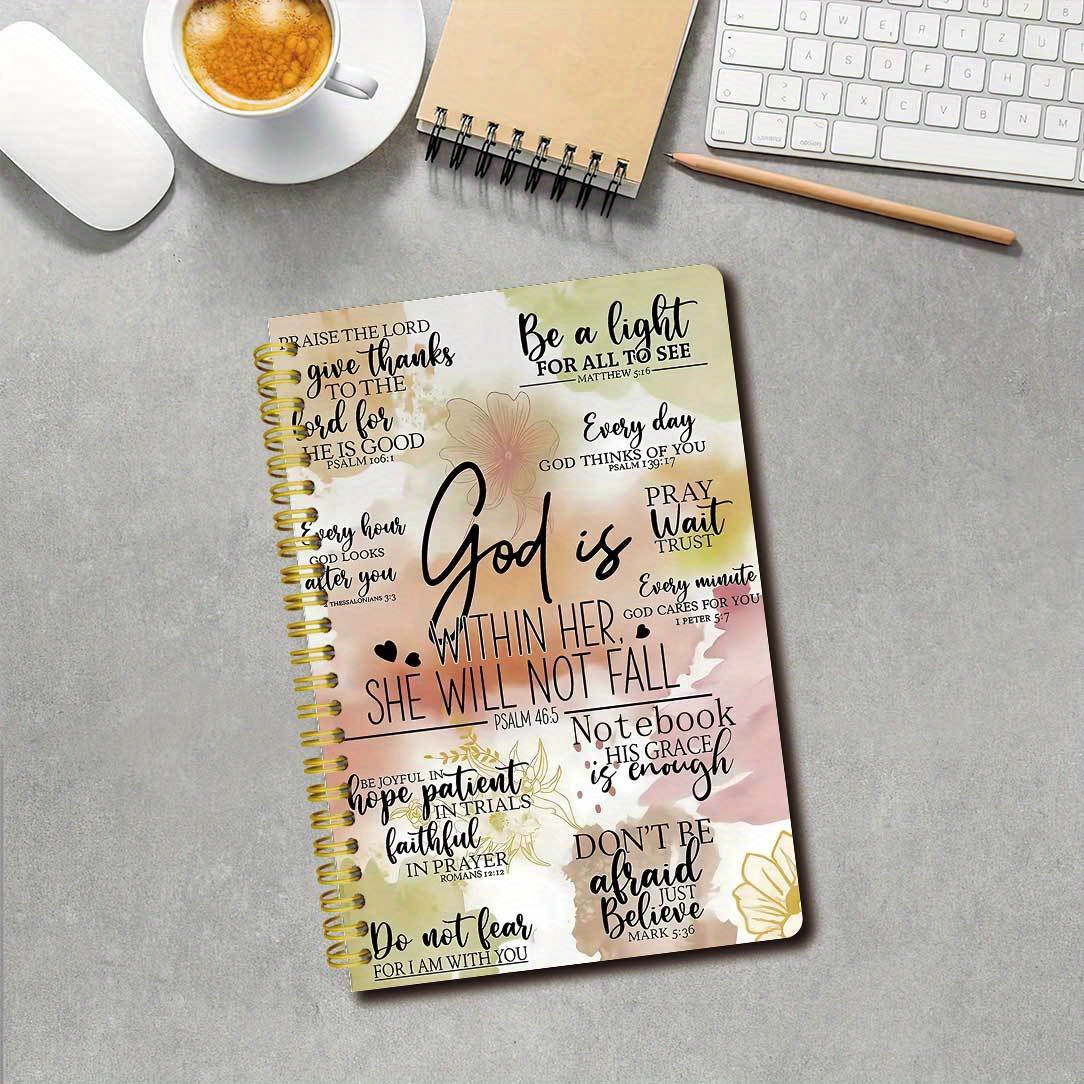 PRAISE THE LORD
give thanks
TO THE
Lord for
HE IS GOOD
PSALM 106:1
Be a light
FOR ALL TO SEE
MATTHEW 5:16
Every day
GOD THINKS OF YOU
PSALM 139:17
PRAY
Wait
TRUST
Every hour
GOD LOOKS
after you
2 THESSALONIANS 3:3
God is
WITHIN HER,
SHE WILL NOT FALL
PSALM 46:5
Every minute
GOD CARES FOR YOU
1 PETER 5:7
Notebook
HIS GRACE
is enough
BE JOYFUL IN
hope patient
IN TRIALS
faithful
IN PRAYER
ROMANS 12:12
DON'T BE
afraid
JUST
Believe
MARK 5:36
Do not fear
FOR I AM WITH YOU
Q W E R T Z U
A S D F G H J
Y X C V B N M